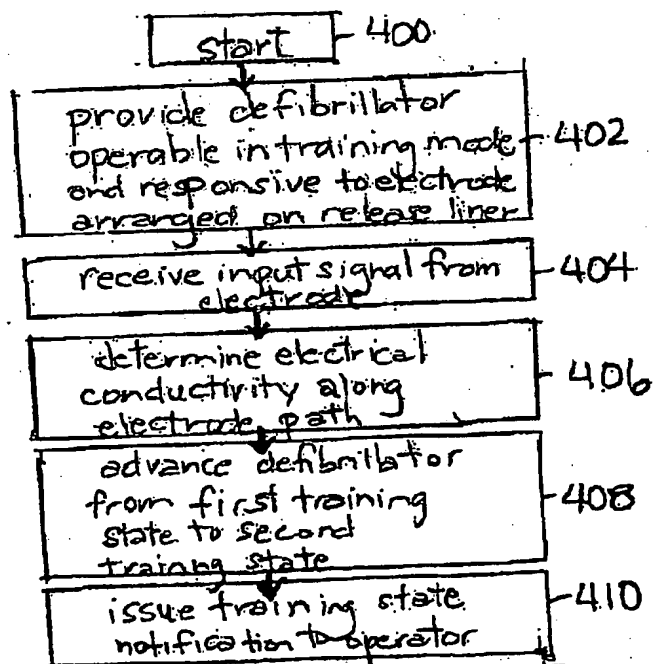 start
400
provide defibrillator
operable in training mode
and responsive to electrode
arranged on release liner
402
receive input signal from
electrode
404
determine electrical
conductivity along
electrode path
406
advance defibrillator
from first training
state to second
training state
408
issue training state
notification to operator
410